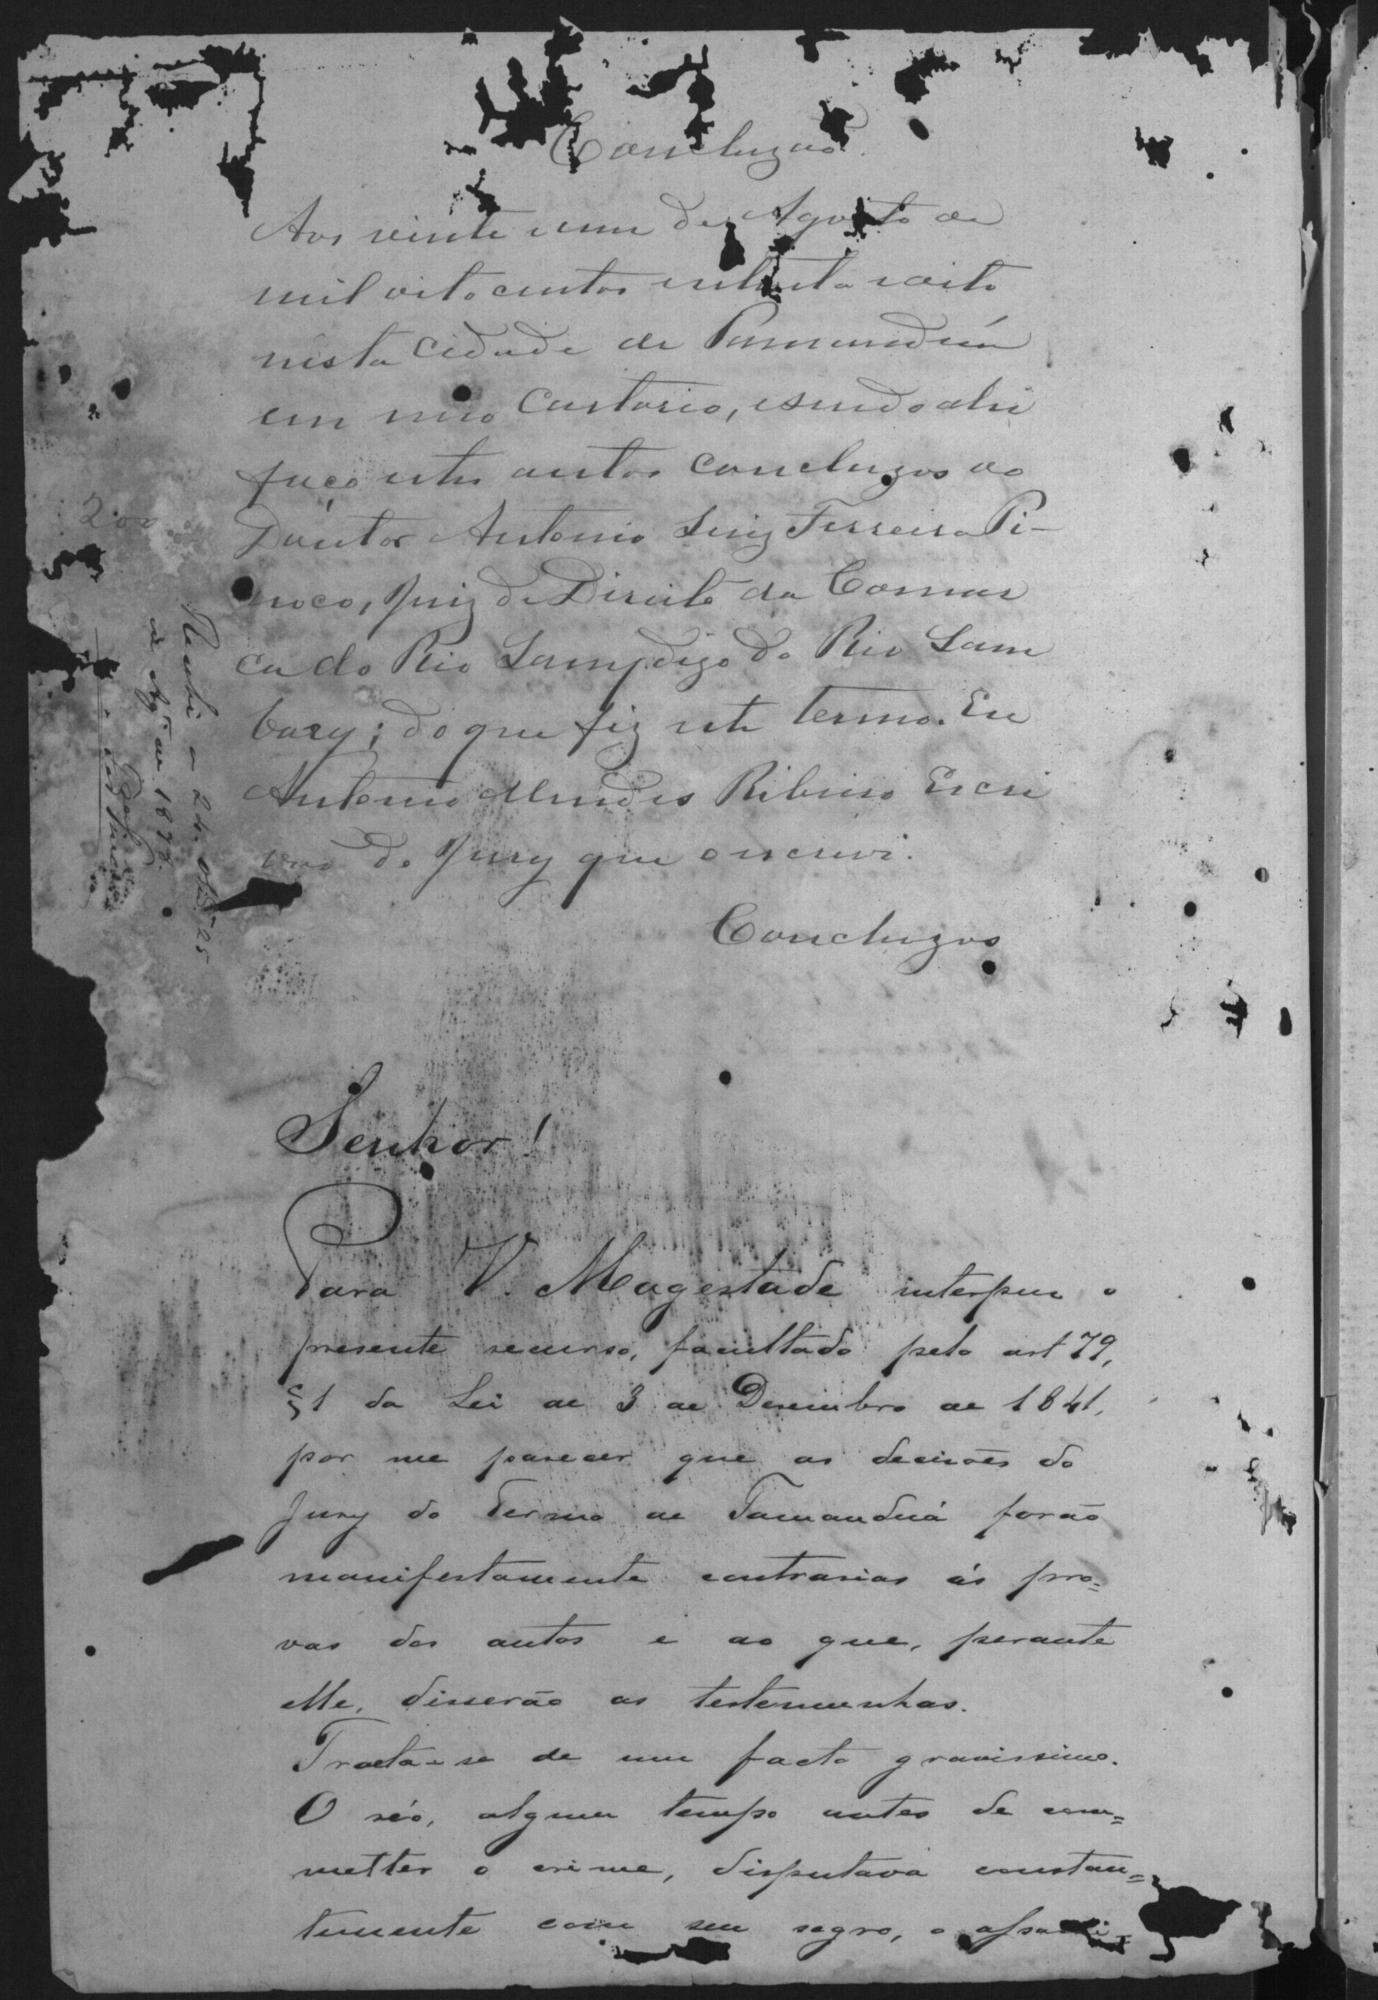 Concluzaõ
Aos vinte e um de Agosto de
mil oito centos e setenta e oito
nésta cidade de Tamanduá
em meo Cartorio, e sendo ahi
faço estes autos concluzos ao
Doutor Antonio Luiz Ferreira Ti-
noco, Juiz de Direito da Comar
ca do Rio Lamp, digo do Rio Lam
bary; do que fiz este termo. Eu
Antonio Mendes Ribeiro Escri
vaõ do Jury que o escrevi.
Concluzos
200
Recebi a 24
de Ag.to de 1878.
Senhor!
Para V. Magestade interpuz o
presente recurso, facultado pelo art 79,
§1 da Lei de 3 de Desembro de 1841,
por me parecer que as decisões do
Jury do Termo de Tamanduá forão
manifestamente contrarias ás pro=
vas dos autos e ao que, perante
elle, disserão as testemunhas.
Tracta-se de um facto gravissimo.
O réo, algum tempo antes de com=
metter o crime, disputava constan=
temente com seu sogro, o